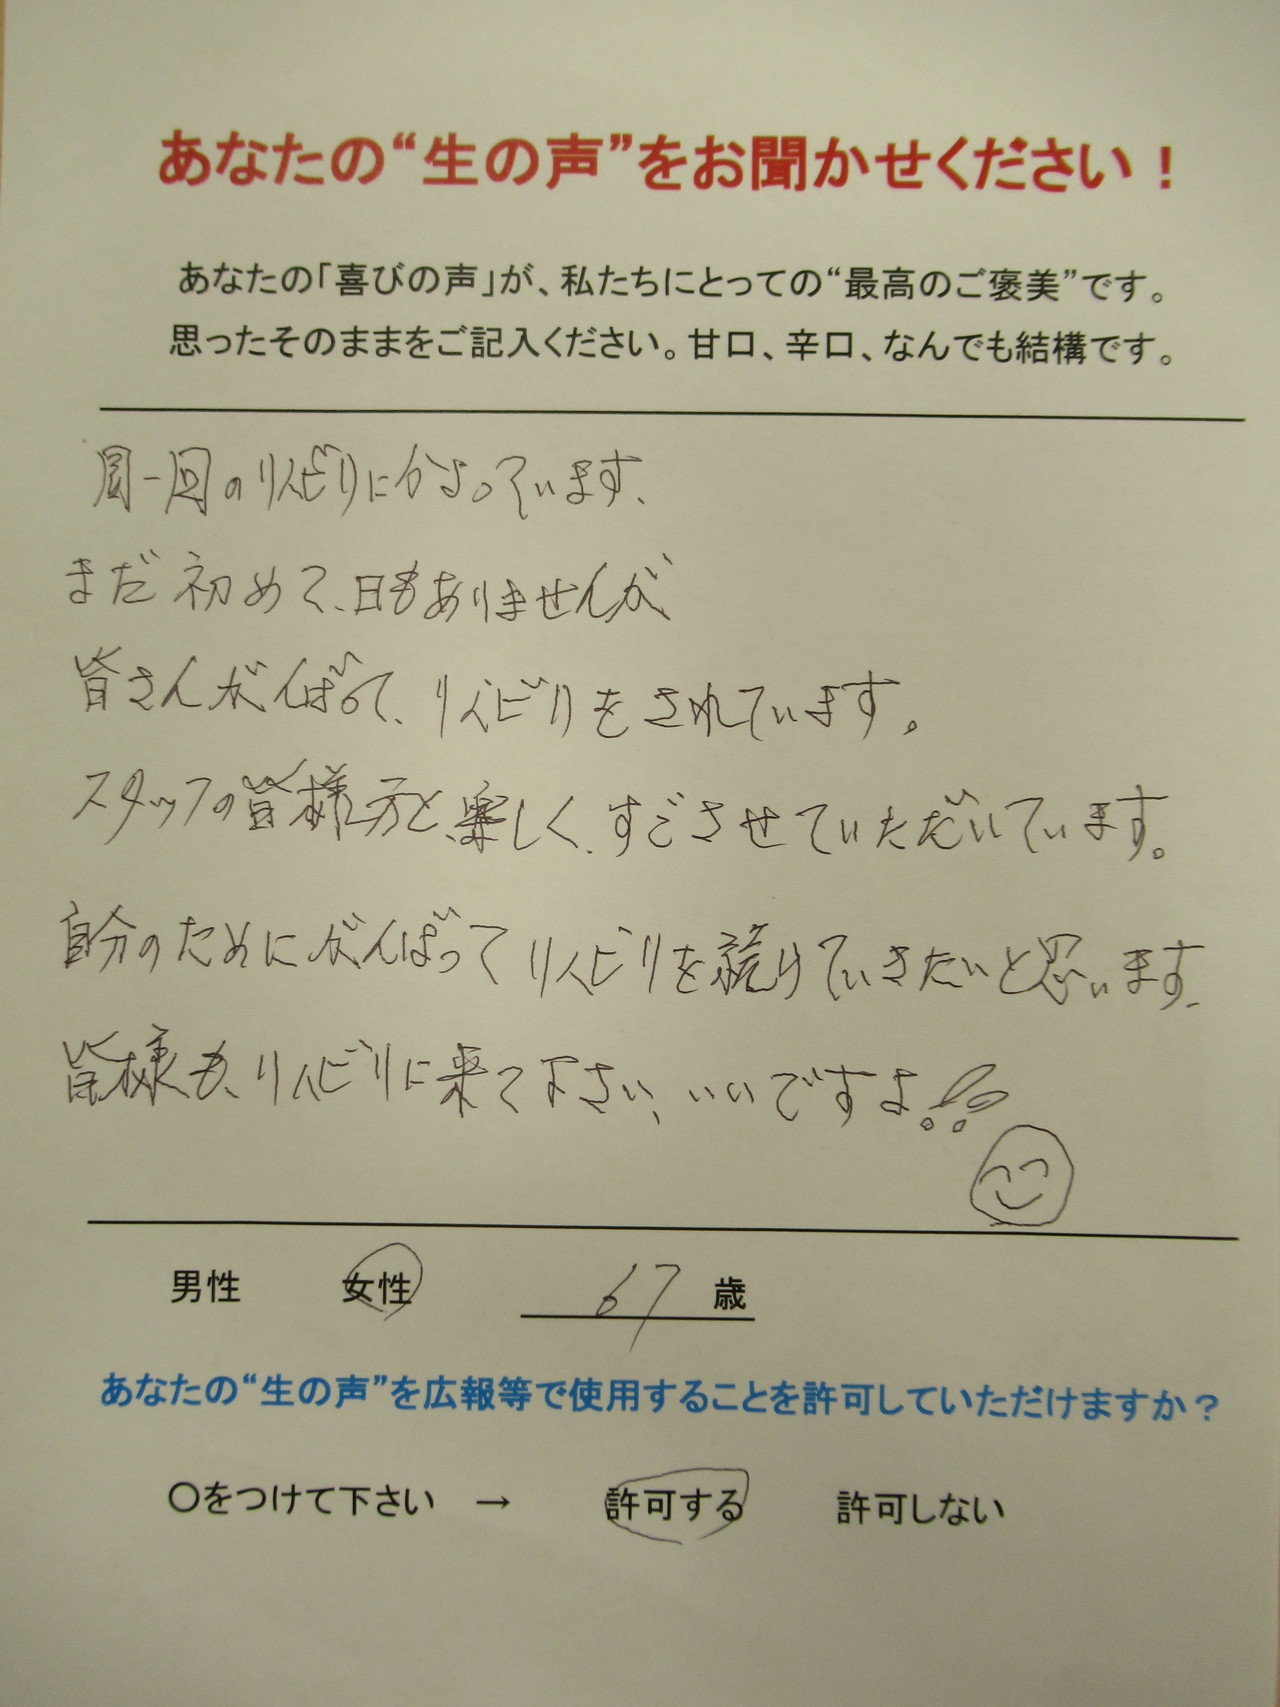 あなたの“生の声”をお聞かせください！
あなたの「喜びの声」が、私たちにとっての“最高のご褒美”です。
思ったそのままをご記入ください。甘口、辛口、なんでも結構です。
周一回のリハビリにかよっています、
まだ初めて、日もありませんが
皆さんがんばって、リハビリをされています。
スタッフの皆様方と、楽しく、すごさせていただいています。
自分のためにがんばってリハビリを続けていきたいと思います、
皆様も、リハビリに来て下さい、いいですよ!!
男性 女性 67 歳
あなたの“生の声”を広報等で使用することを許可していただけますか？
〇をつけて下さい → 許可する 許可しない